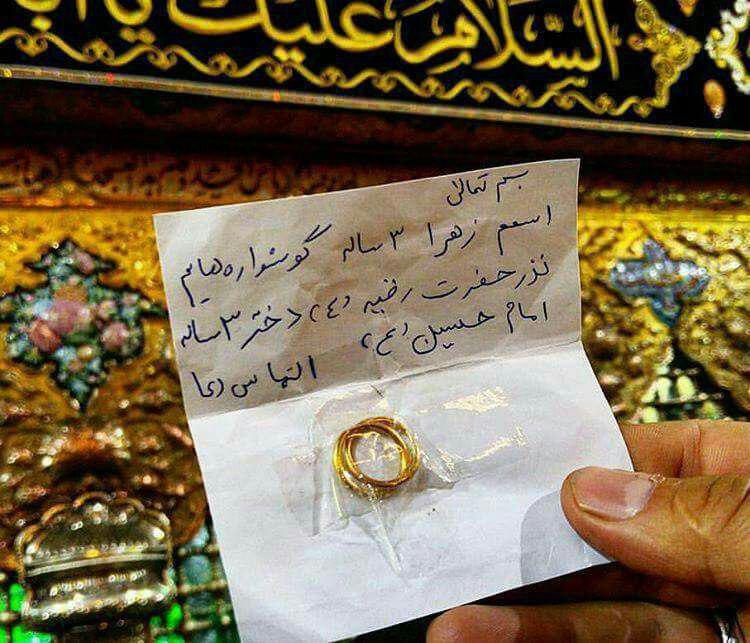 السلام علیک یا ابا
بسم تعالی
اسمم زهرا ۳ ساله گوشواره هایم
نذر حضرت رقیه (ع) دختر ۳ ساله
امام حسین (ع) التماس دعا